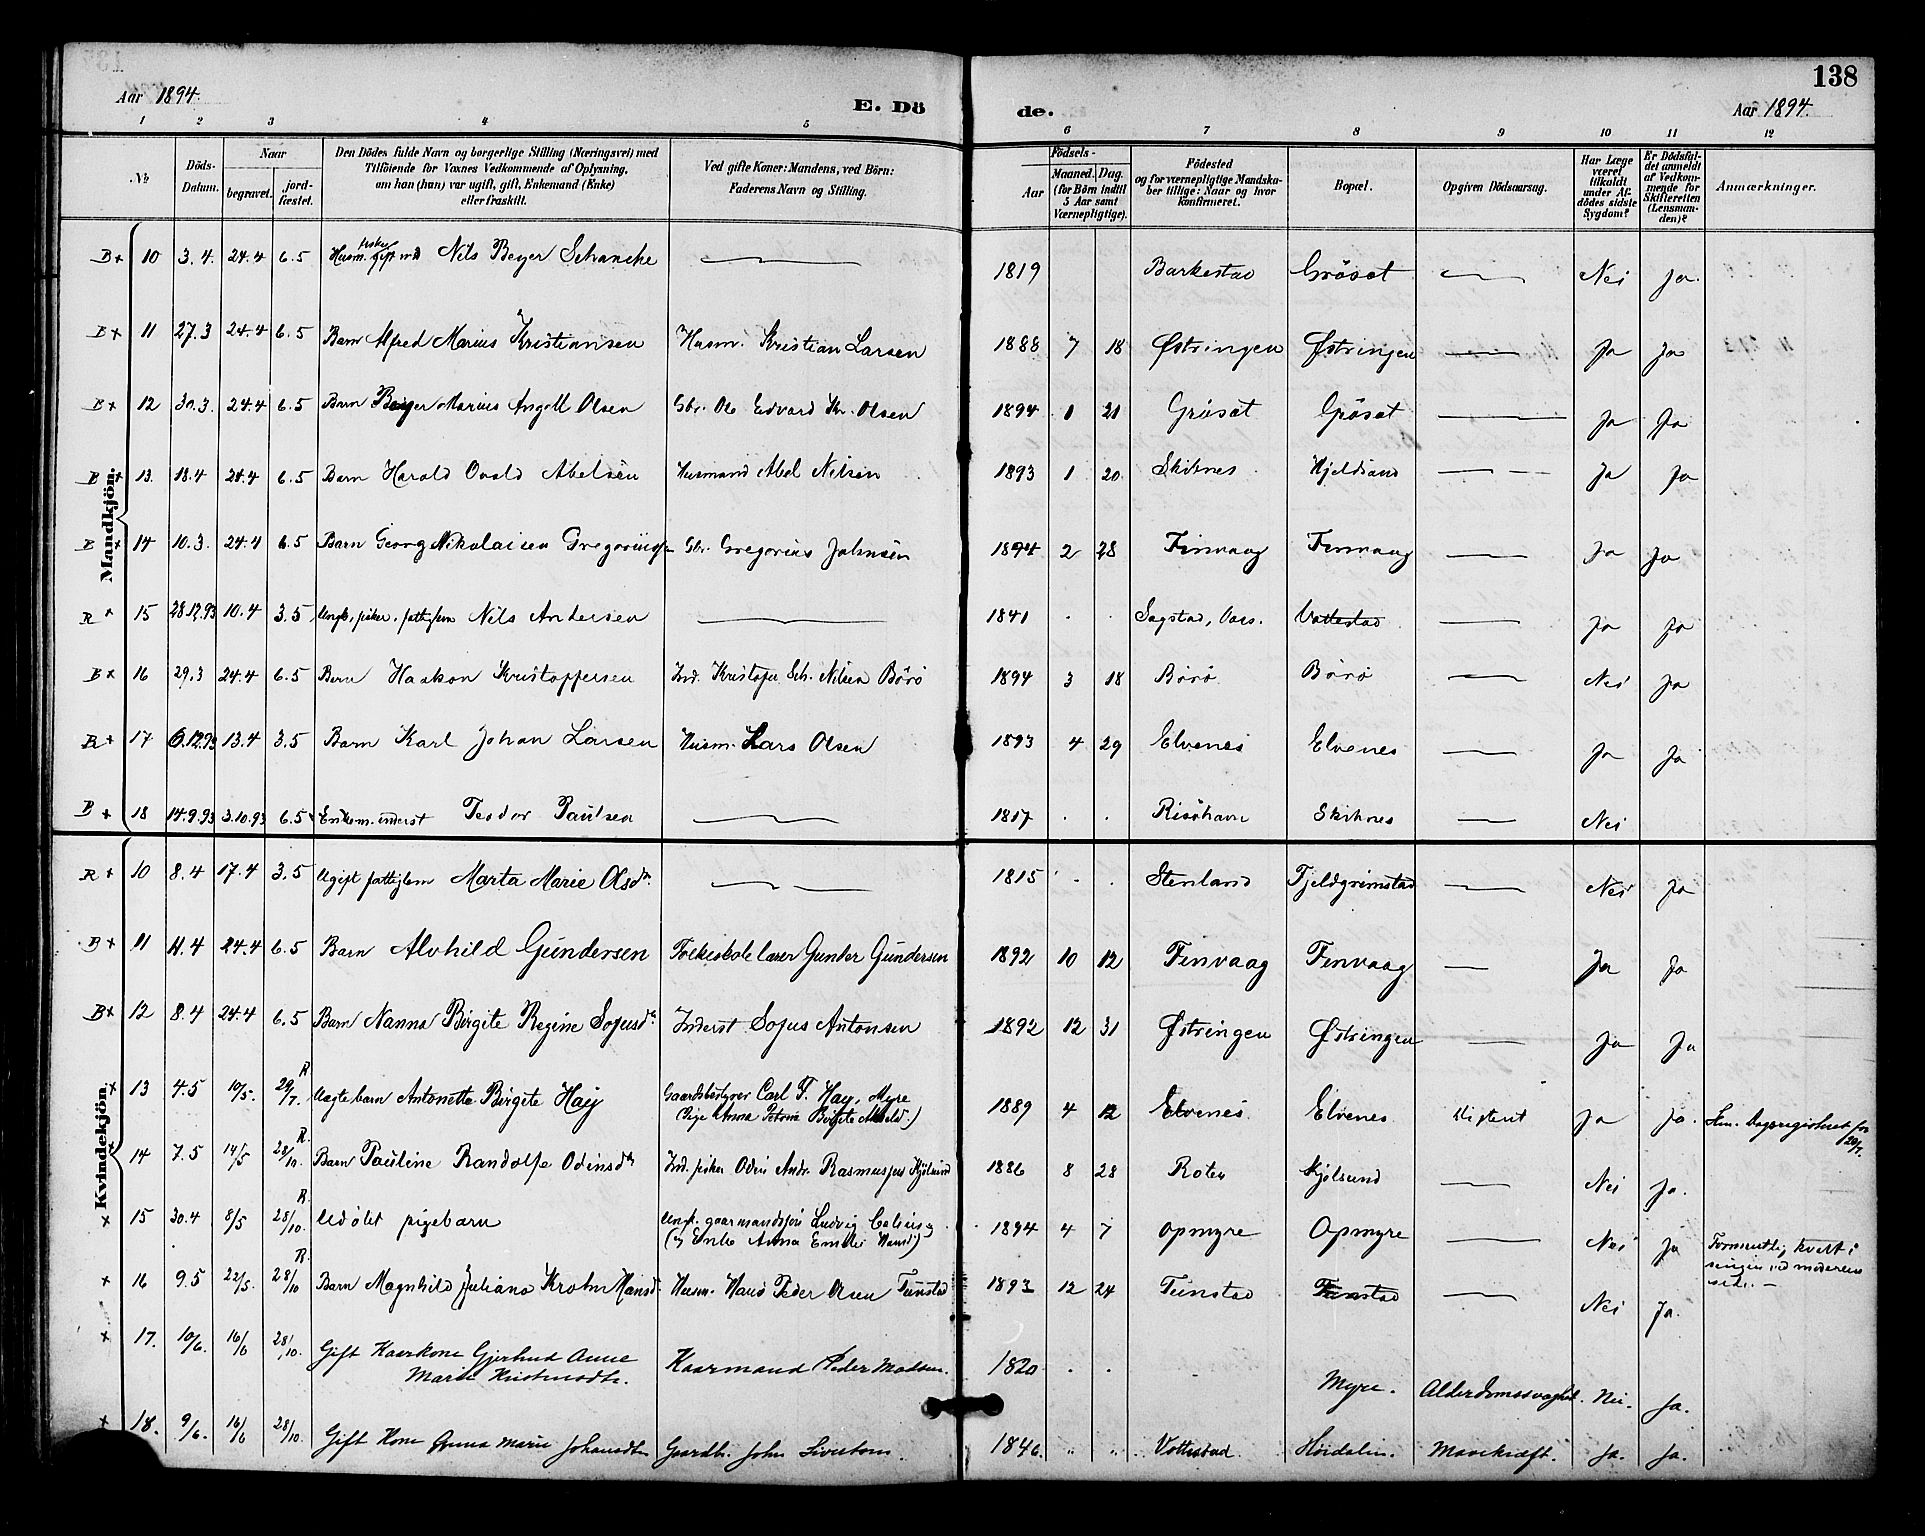 138
Aar 1894.
E. Dö
de.
Aar 1894.
1 2 3 4 5 6 7 8 9 10 11 12
No
Döds-Datum.
Naar
begravet.
jord-fæstet.
Den Dödes fulde Navn og borgerlige Stilling (Næringsvei) med
Tilföiende for Voxnes Vedkommende af Oplysning,
om han (hun) var ugift, gift, Enkemand (Enke)
eller fraskilt.
Ved gifte Koner: Mandens, ved Börn:
Faderens Navn og Stilling.
Födsels-
Aar
Maaned. Dag.
(for Börn indtil
5 Aar samt
Værnepligtige).
Födested
og for værnepligtige Mandska-
ber tillige: Naar og hvor
konfirmeret.
Bopæl.
Opgiven Dödsaarsag.
Har Læge
været
tilkaldt
under Af-
dödes sidste
Sygdom?
Er Dödsfal-
det anmeldt
af Vedkom-
mende for
Skifteretten
(Lensman-
den)?
Anmærkninger.
Mandkjön.
B+ 10 3.4. 24.4 6.5 Husm. fisker gift Nils Beyer Schancke 1819 Barkestad Gröset Nei Ja.
B+ 11 27.3 24.4 6.5 Barn Alfred Marius Kristiansen Husm. Kristian Larsen 1888 7 18 Østringen Østringen Ja Ja
B+ 12 30.3. 24.4 6.5 Barn Beyer Marius Angell Olsen Gbr. Ole Edvard Kr. Olsen 1894 1 21 Gröset Gröset Ja Ja
B+ 13. 18.4 24.4 6.5 Barn Harald Osvald Abelsen Husmand Abel Nilsen 1893 1 20. Skiknes Hjeldsand Ja Ja
B+ 14 10.3. 24.4 6.5 Barn Georg Nikolaisen Gbr. Gregorius Johnsen 1894 2 28 Finvaag Finvaag Ja Ja
R+ 15 28.12.93 10.4 3.5 Ungk. fisker, fattiglem Nils Andersen 1841 . . Sagstad, Vottestad Ja Ja
B+ 16 29.3 24.4 6.5 Barn Haakon Kristoffersen Ind. Kristofer Sch. Nilsen Börö 1894 3 18 Börö Börö Nei Ja
R+ 17 6.12.93 13.4 3.5 Barn Karl Johan Larsen Husm. Lars Olsen 1893 4 29 Elvenes Elvenes Ja Ja
B+ 18 14.9.93 3.10.93 6.5 Enkem. inderst Teodor Paulsen 1817 . . Risöhavn Skiknes Nei
Kvindekjön.
R+ 10 8.4 17.4 3.5 Ugift fattiglem Marta Marie Olsdr. 1815 . . Stenland Tjeldgrimstad Nei Ja
B+ 11 11.4 24.4 6.5 Barn Alvhild Gundersen Folkeskolelærer Gunder Gundersen 1892 10 12 Finvaag Finvaag Ja Ja
B+ 12 8.4 24.4 6.5 Barn Nanna Birgite Regine Sofusdr Inderst Sofus Antonsen 1892 12 31 Østringen Østringen Ja Ja
+ 13 4.5 10/5. R 29/7. Uægte barn Antonette Birgite Hay Gaardsbestyrer Carl F. Hay, Myre
Pige Anna Petona Birgite
1889 4 12 Elvenes Elvenes Difterit Ja Ja. Dagsregisteret for 29/7.
+ 14 7.5 14/5 R. 28/10. Barn Pauline Randolfe Odinsdr Ind. fisker Odin Andr. Rasmussen Kjölsund 1886 8 28 Roten Kjölsund Nei Ja.
+ 15 30.4 8/5 R. 28/10. Udöbt pigebarn Ungk. gaarmandssön Ludvig
(og Enke Anna Emilie Hansdr)
1894 4 7 Opmyre Opmyre Nei Ja Formentlig kvalt i
sengen ved moderens
side. —
+ 16 9.5 22/5. R. 28/10 Barn Magnhild Juliana Krohn Hansdr Husm. Hans Peder Olsen Tunstad 1893 12 24 Tunstad Tunstad Nei Ja.
+ 17. 10/6. 16/6 28/10. Gift Kaarkone Gjertrud Anne
Marie Kristensdtr. Kaarmand Peder Madsen. 1820 . . Myre. Alderdomssvaghed. Nei. Ja.
+ 18. 9/6. 16/6 28/10. Gift Kone Anna Marie Johansdtr Gaardbr. John Sivertsen. 1846. " " Vottestad. Höidalen. Mavekræft. Ja. Ja.